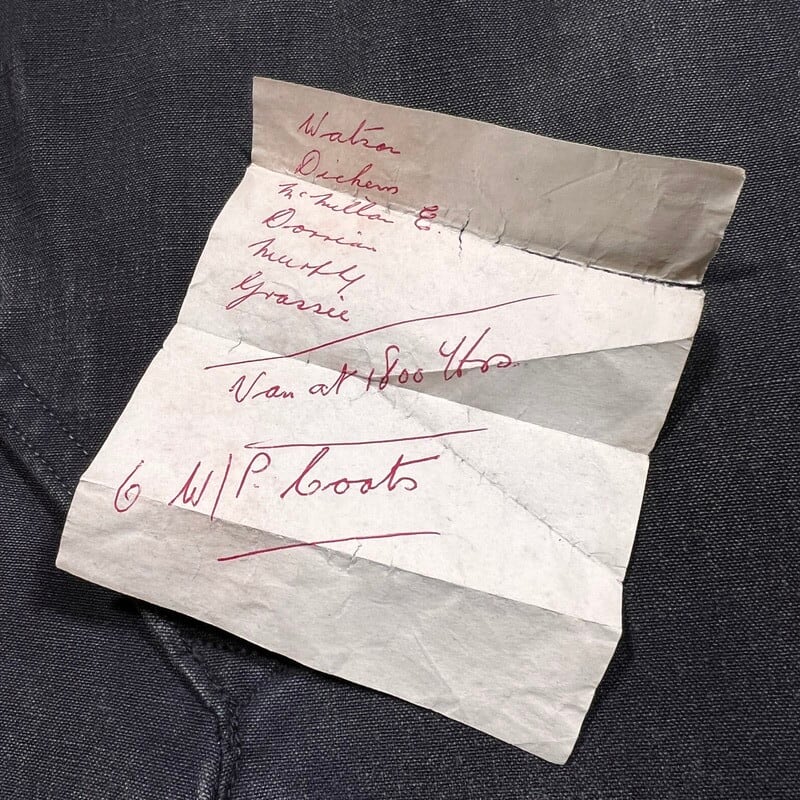 Watson
Dickens
McMillan E.
Dorrian
Murphy
Grassie
Van at 1800 Hrs.
6 W/P. Coats